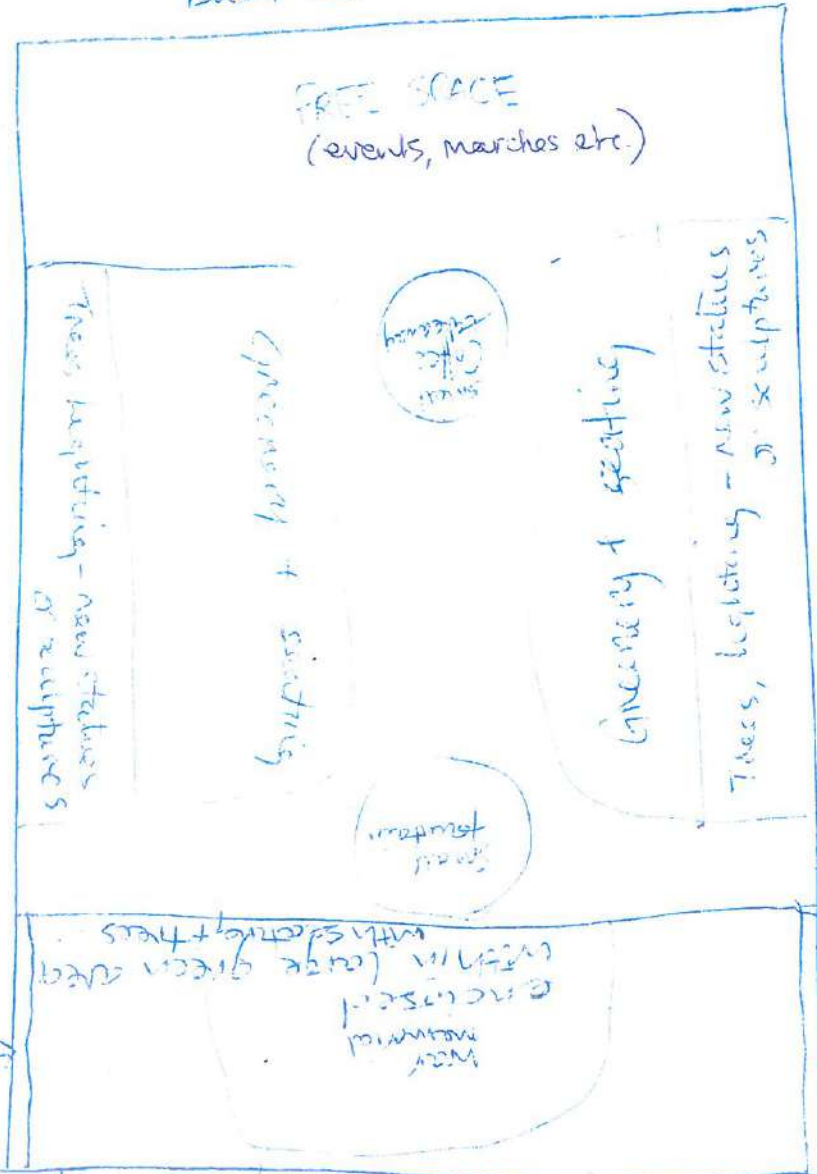 FREE SPACE
(events, marches etc.)
Trees, lighting - new statues
or sculptures
Greenery + seating
Greenery + seating
Trees, lighting - new statues
or sculptures
Small
fountain
War
memorial
enclosed
within large green area
with seating + trees